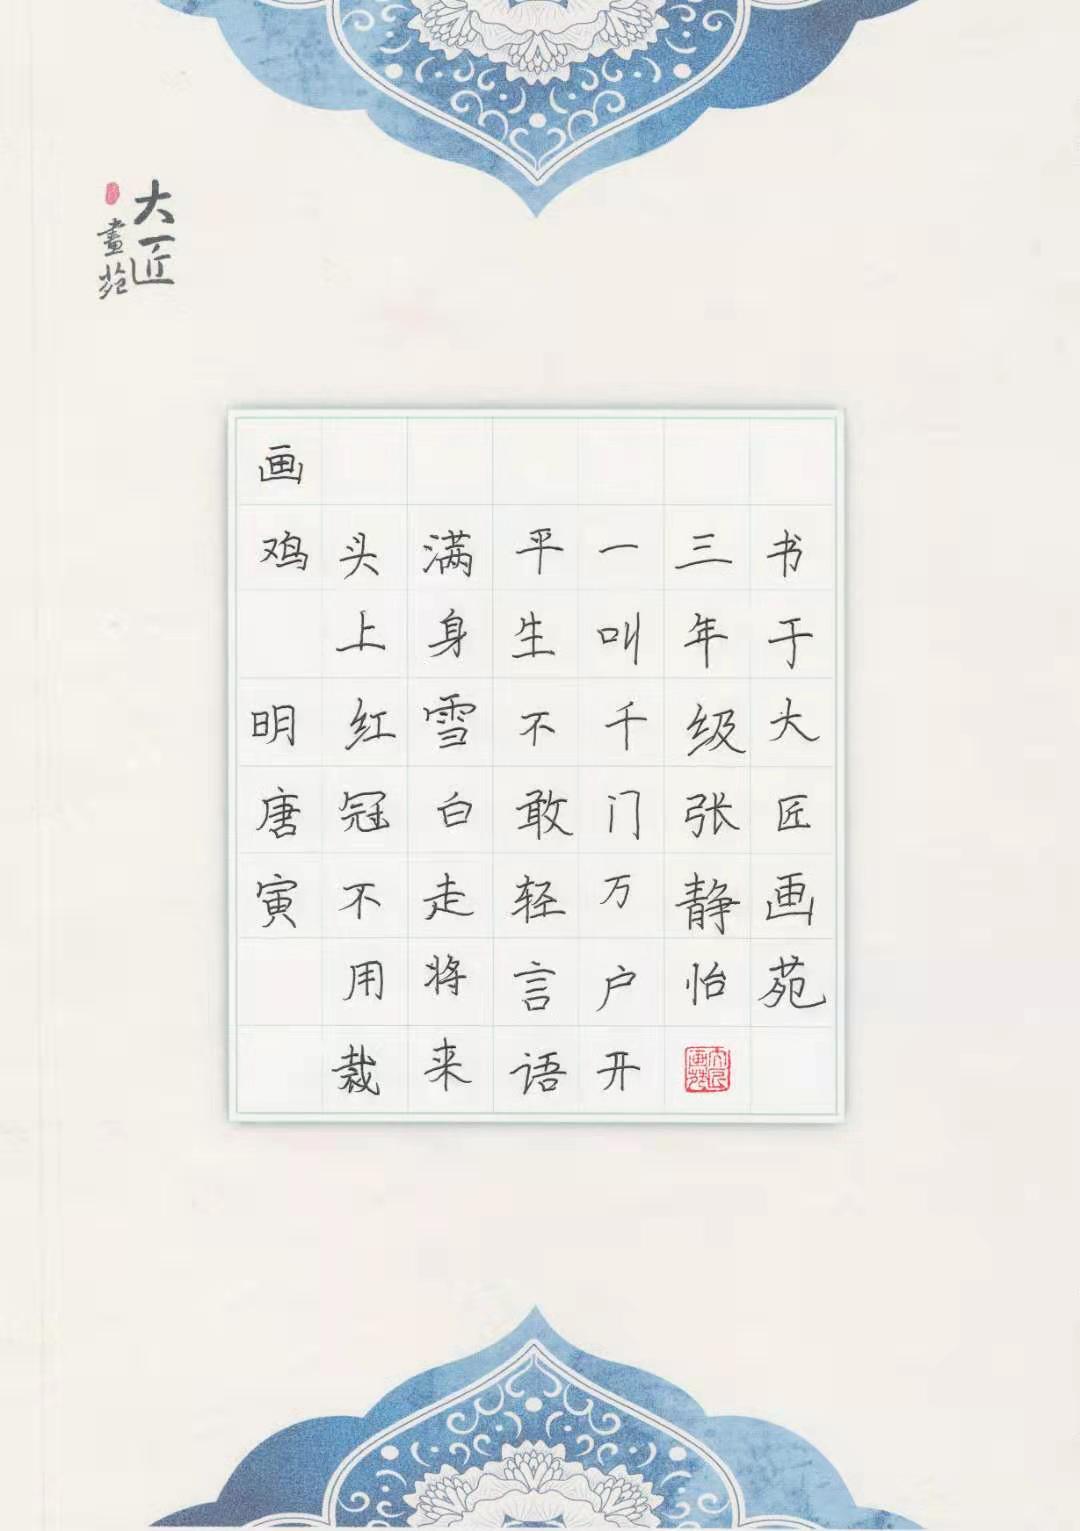 大匠
畫苑
画鸡 明 唐寅
头上红冠不用裁
满身雪白走将来
平生不敢轻言语
一叫千门万户开
三年级张静怡
大匠画苑
书于大匠画苑